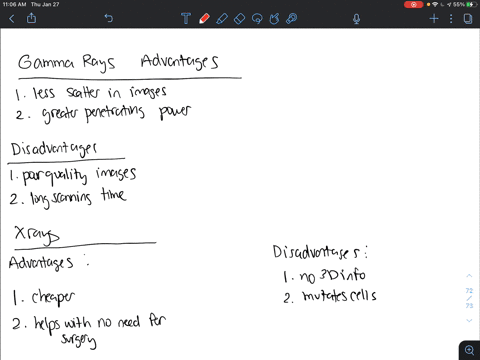 11:06 AM Thu Jan 27
55%
Gamma Rays Advantages
1. less scatter in images
2. greater penetrating power
Disadvantages
1. poor quality images
2. long scanning time
Xrays
Advantages :
1. cheaper
2. helps with no need for
surgery
Disadvantages :
1. no 3D info
2. mutates cells
72
/
73